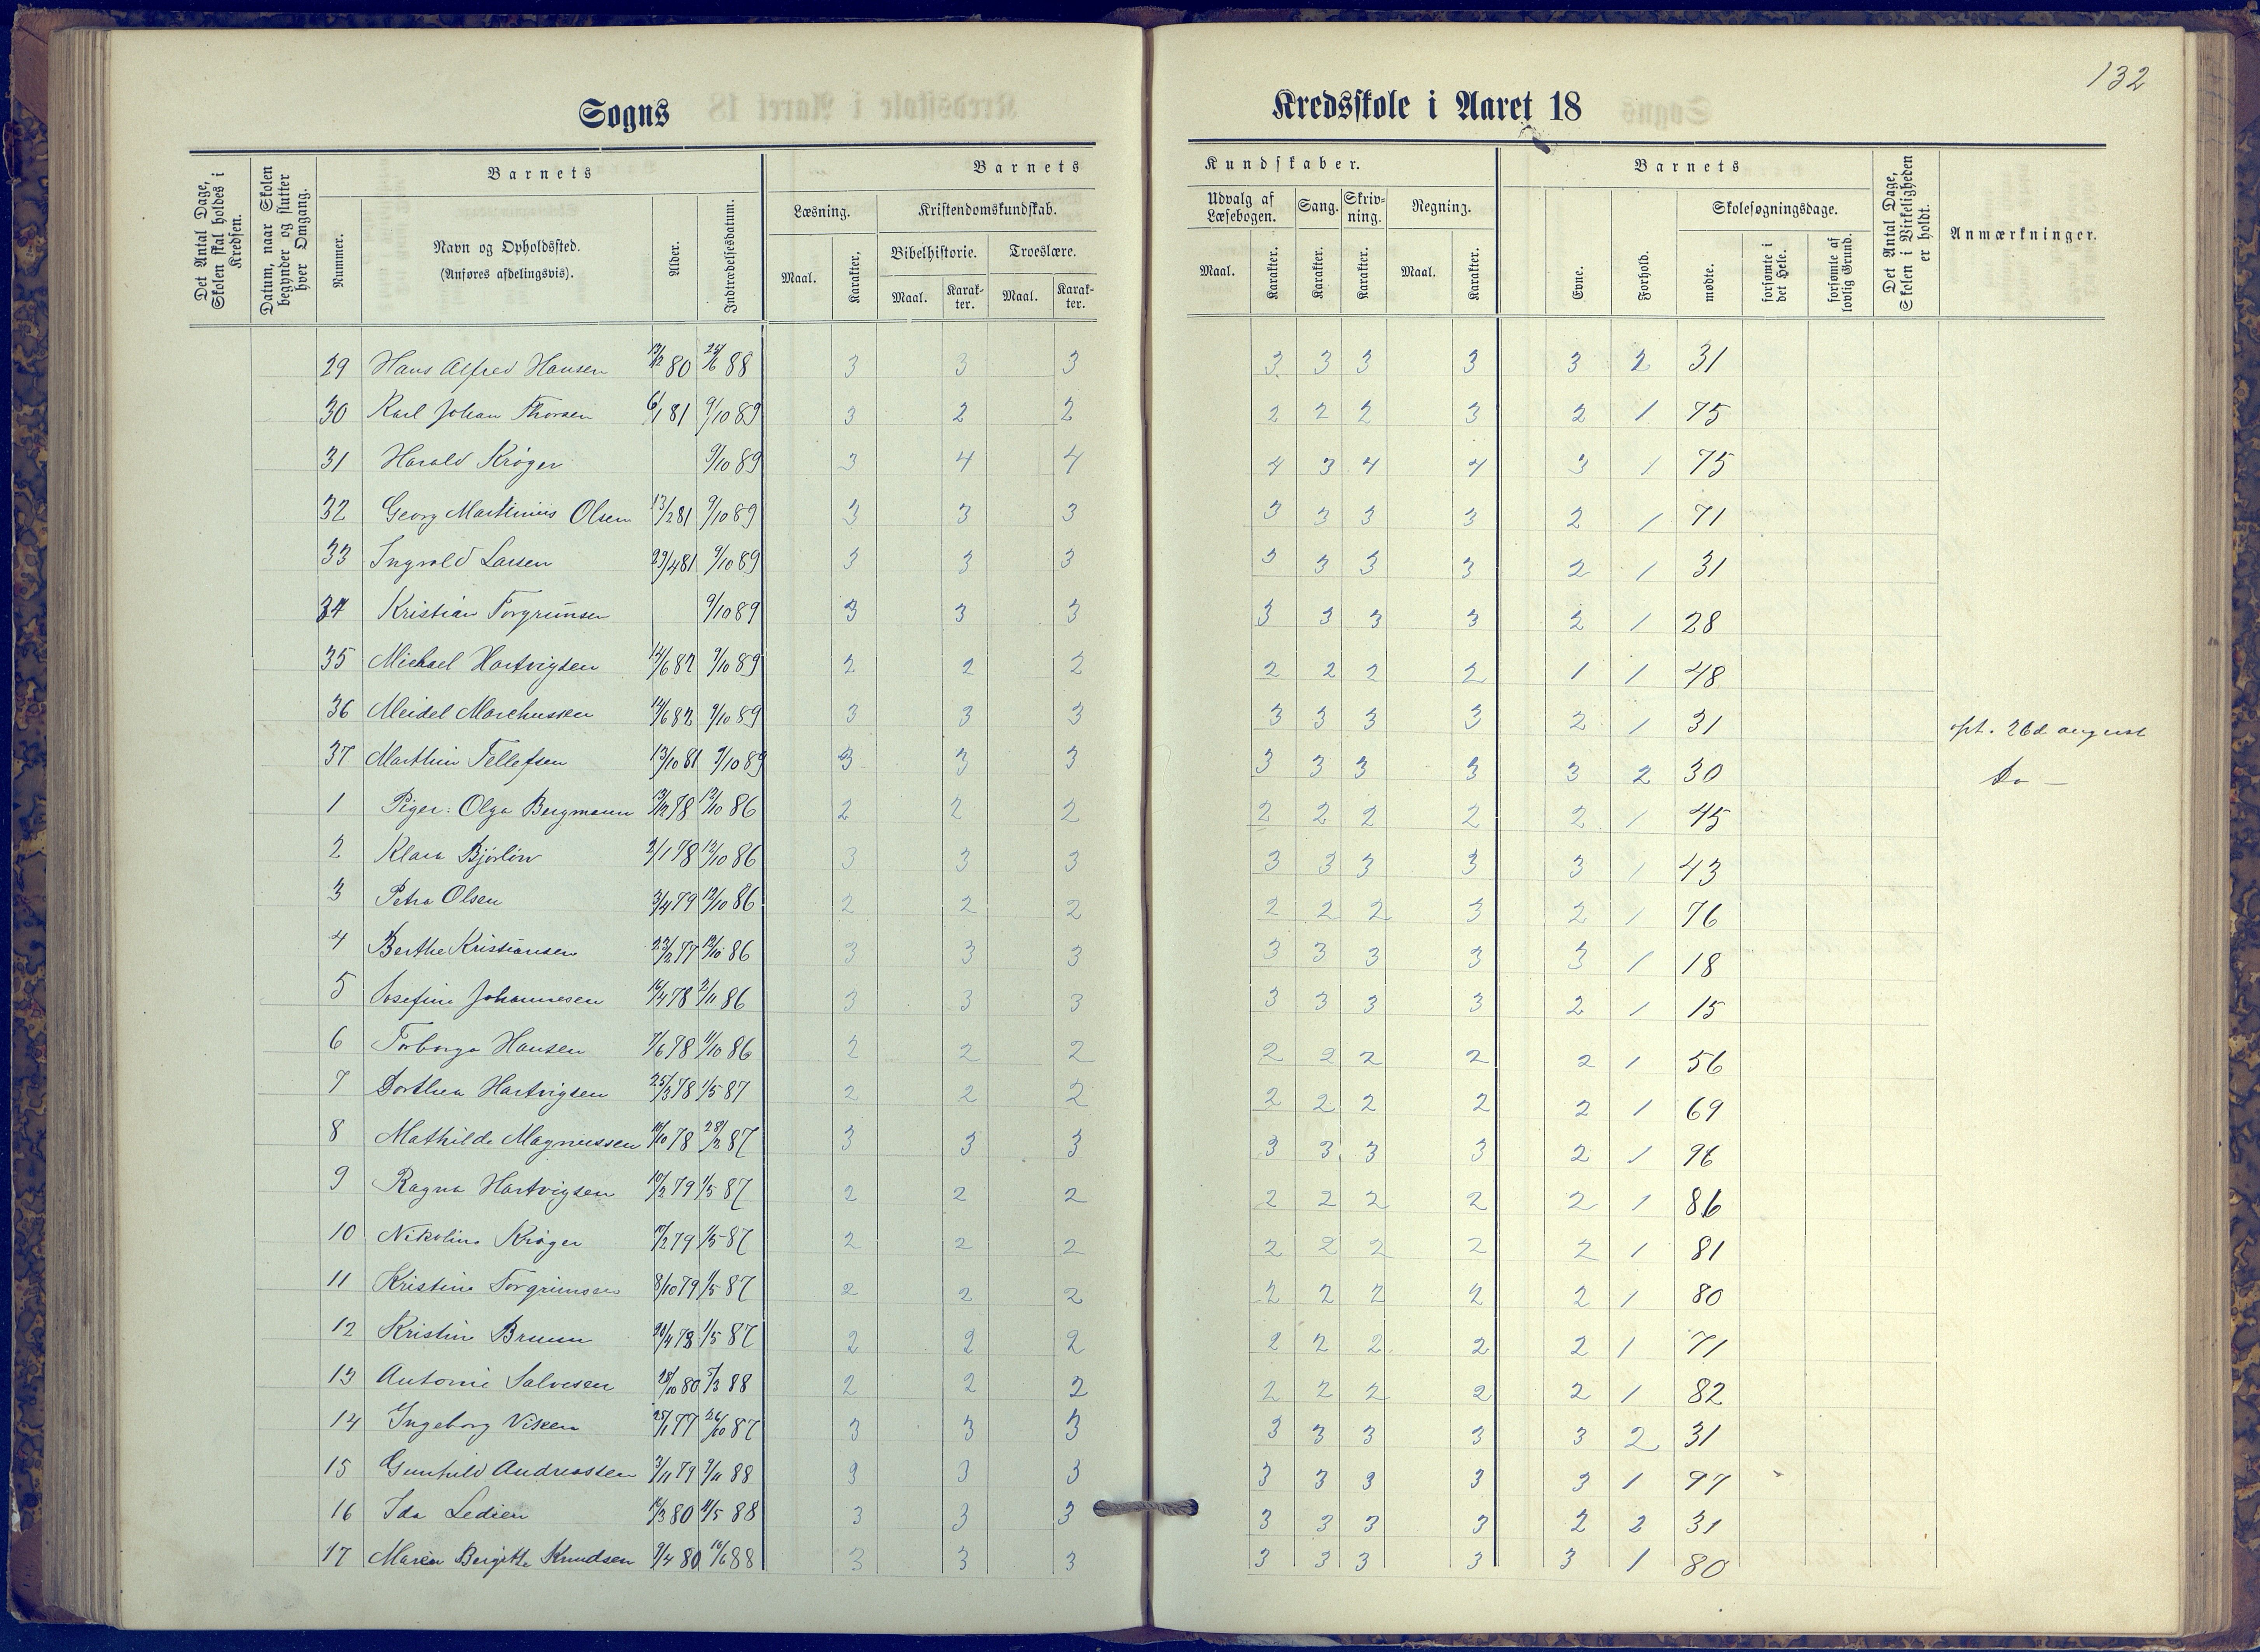 132
Sogns Kredsskole i Aaret 18
Det Antal Dage, Skolen skal holdes i Kredsen.
Datum, naar Skolen begynder og slutter hver Omgang.
Barnets
Nummer.
Navn og Opholdssted.
(Anføres afdelingsvis).
Alder.
Indtrædelsesdatum.
Barnets Kundskaber.
Læsning. Maal. Karakter.
Kristendomskundskab.
Bibelhistorie. Maal. Karak-ter.
Troeslære. Maal. Karak-ter.
Udvalg af Læsebogen. Maal. Karakter.
Sang. Karakter.
Skriv-ning. Karakter.
Regning. Maal. Karakter.
Barnets
Evne.
Forhold.
Skolesøgningsdage.
mødte.
forsømte i det Hele.
forsømte af lovlig Grund.
Det Antal Dage, Skolen i Virkeligheden er holdt.
Anmærkninger.
29 Hans Alfred Hansen 80 88 3 3 3 3 3 3 3 3 2 31
30 Karl Johan Thorsen 6/1 81 9/10 89 3 2 2 2 2 2 3 2 1 75
31 Harald Krøger 9/10 89 3 4 4 4 3 4 4 3 1 75
32 Georg Martinius Olsen 13/2 81 9/10 89 3 3 3 3 3 3 3 2 1 71
33 Ingvald Larsen 29/4 81 9/10 89 3 3 3 3 3 3 3 2 1 31
34 Kristian Torgrimsen 9/10 89 3 3 3 3 3 3 3 2 1 28
35 Michael Hartvigsen 9/10 89 2 2 2 2 2 2 2 1 1 48
36 Meidel Marchussen 9/10 89 3 3 3 3 3 3 3 2 1 31 opt. 26d august
37 Marthin Tellefsen 13/10 81 9/10 89 3 3 3 3 3 3 3 3 2 30 Do —
1 Piger: Olga Bergmann 78 12/10 86 2 2 2 2 2 2 2 2 1 45
2 Klara 78 12/10 86 3 3 3 3 3 3 3 3 1 43
3 Petra Olsen 3/4 79 12/10 86 2 2 2 2 2 2 3 2 1 76
4 Berthe Kristiansen 23/2 77 12/10 86 3 3 3 3 3 3 3 3 1 18
5 Josefine Johannesen 16/4 78 2/11 86 3 3 3 3 3 3 3 2 1 15
6 Torborga Hansen 7/6 78 11/10 86 2 2 2 2 2 2 2 2 1 56
7 Dorthea Hartvigsen 25/3 78 1/5 87 2 2 2 2 2 2 2 2 1 69
8 Mathilde Magnussen 78 28/2 87 3 3 3 3 3 3 3 2 1 96
9 Ragna Hartvigsen 10/2 79 1/5 87 2 2 2 2 2 2 2 2 1 86
10 Nikoline Krøger 79 1/5 87 2 2 2 2 2 2 2 2 1 81
11 Kristine Torgrimsen 8/10 79 1/5 87 2 2 2 2 2 2 2 2 1 80
12 Kristin Bruun 78 1/5 87 2 2 2 2 2 2 2 2 1 71
13 Antonie Salvesen 28/10 80 88 2 2 2 2 2 2 2 2 1 82
14 Ingeborg Viken 25/1 77 26/10 87 3 3 3 3 3 3 3 3 2 31
15 Gunhild Andreassen 3/11 79 88 3 3 3 3 3 3 3 3 1 97
16 Ida Ledien 80 88 3 3 3 3 3 3 3 2 2 31
17 Maren Bergitte Knudsen 9/4 80 16/6 88 3 3 3 3 3 3 3 3 1 80